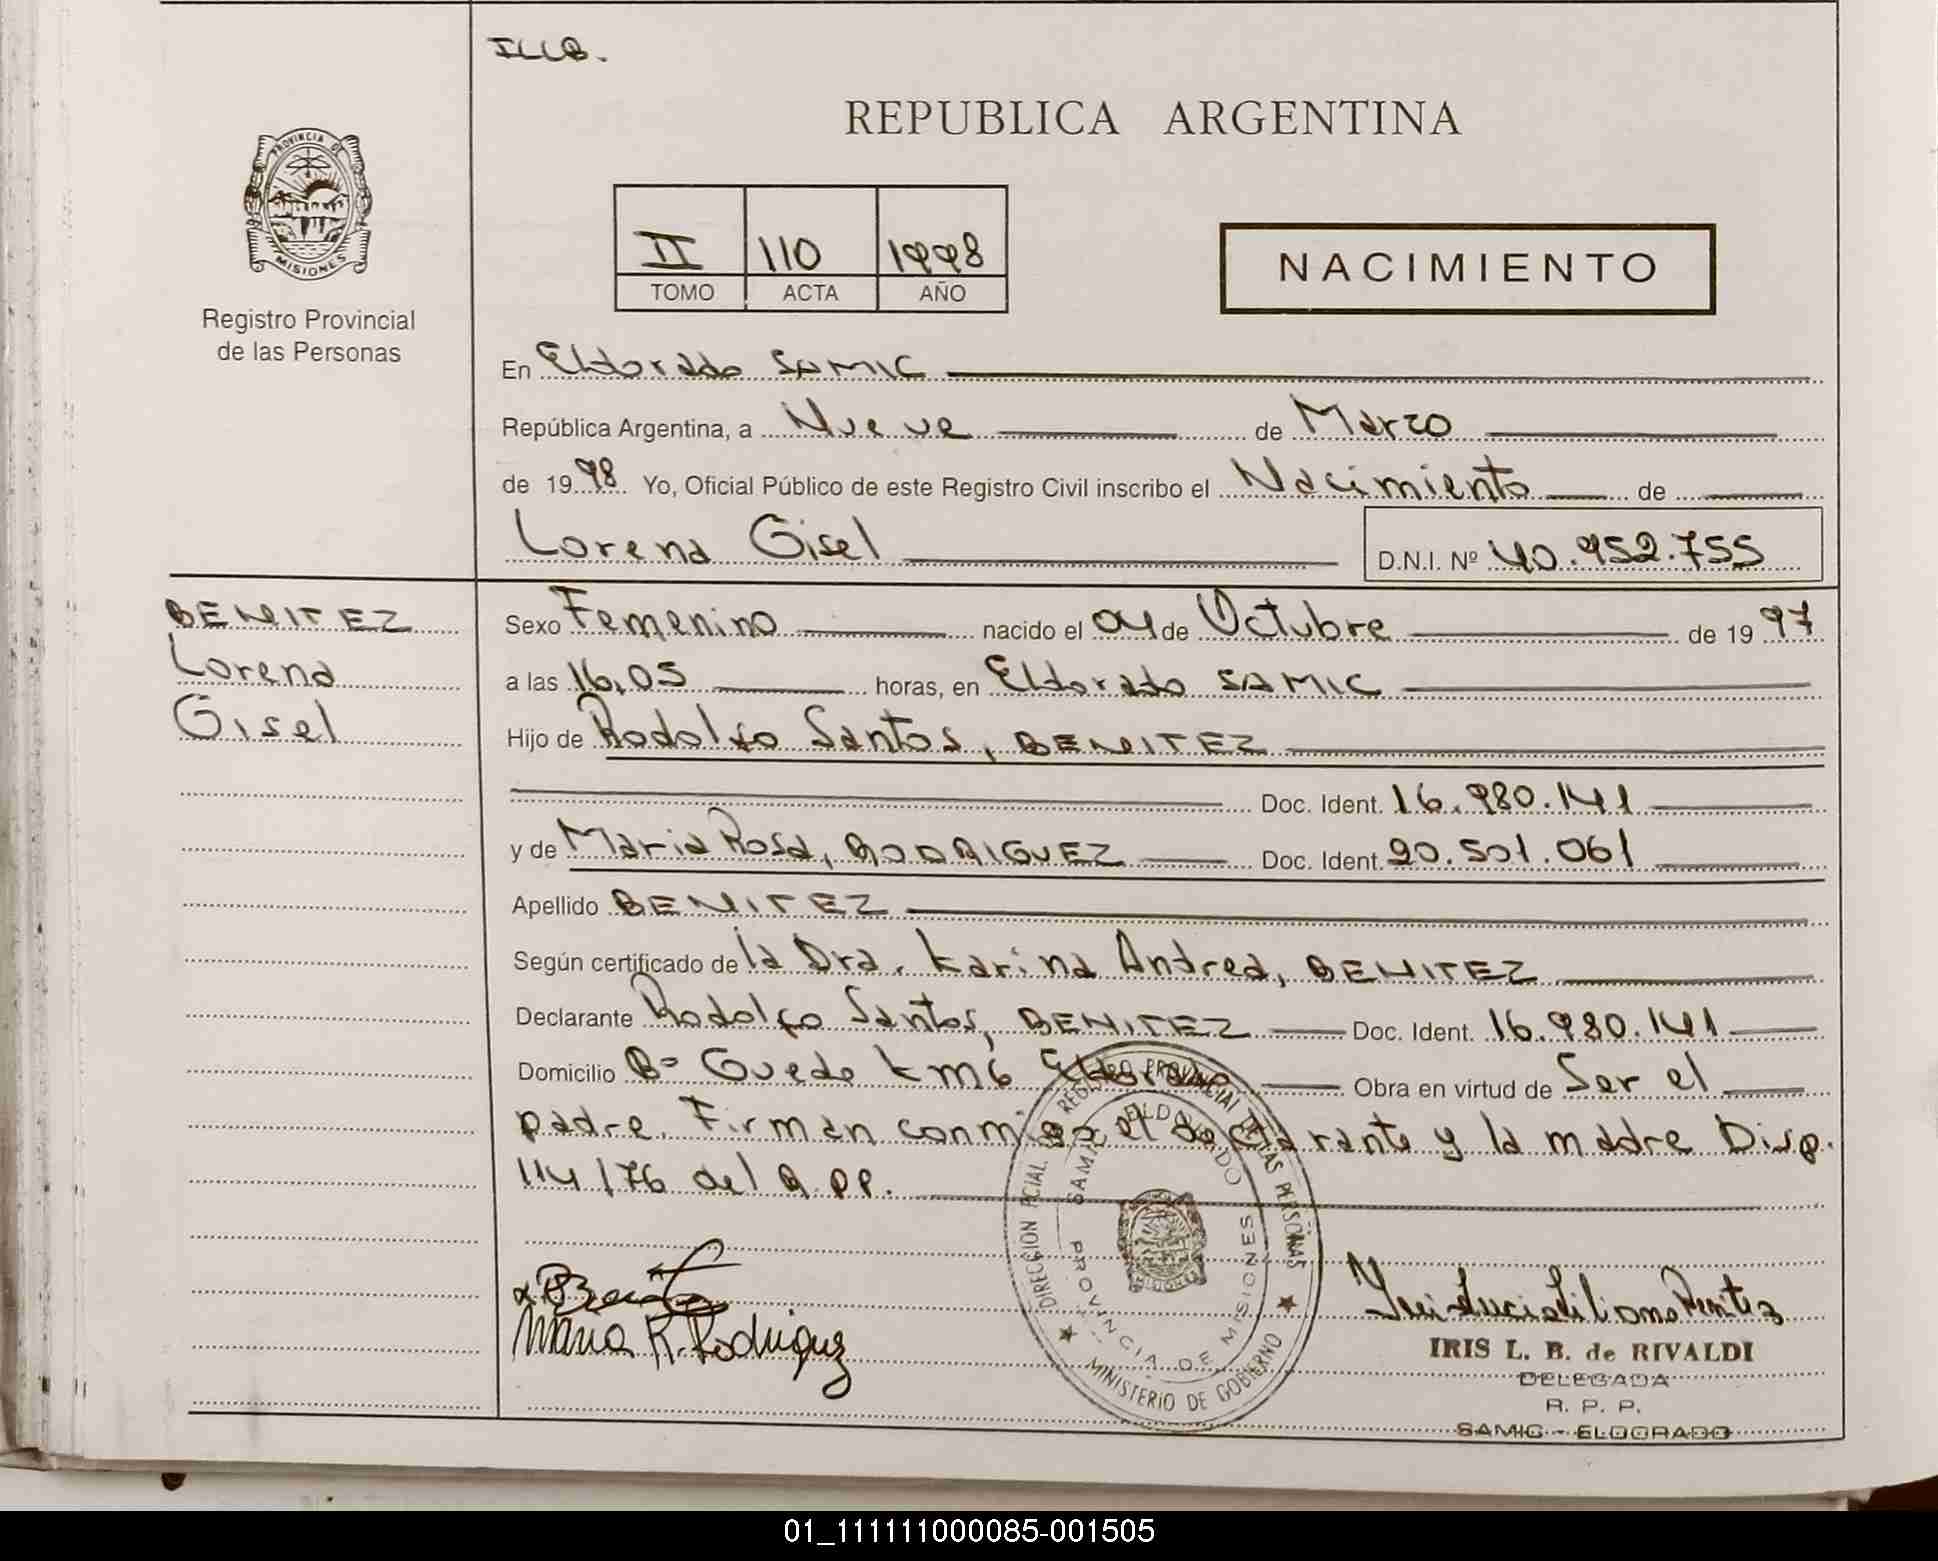 ILLB.
REPUBLICA ARGENTINA
PROVINCIA DE
MISIONES
Registro Provincial
de las Personas
II 110 1998
TOMO ACTA AÑO
NACIMIENTO
En Eldorado SAMIC
República Argentina, a Nueve de Marzo
de 1998 Yo, Oficial Público de este Registro Civil inscribo el Nacimiento de
Lorena Gisel D.N.I. Nº 40.952.755
BENITEZ
Lorena
Gisel
Sexo Femenino nacido el 04 de Octubre de 1997
a las 16,05 horas, en Eldorado SAMIC
Hijo de Rodolfo Santos, BENITEZ
Doc. Ident. 16.980.141
y de Maria Rosa, RODRIGUEZ Doc. Ident. 90.501.061
Apellido BENITEZ
Según certificado de la Dra. Karina Andrea, BENITEZ
Declarante Rodolfo Santos, BENITEZ Doc. Ident. 16.980.141
Domicilio Bº Guedo km 6 Eldorado Obra en virtud de Ser el
padre. Firman conmigo el declarante y la madre Disp.
114/76 del R.PP.
DIRECCION PCIAL. REGISTRO PROVINCIAL DE LAS PERSONAS
SAMIC ELDORADO
PROVINCIA DE MISIONES
MINISTERIO DE GOBIERNO
Maria R. Rodriguez
IRIS L. B. de RIVALDI
DELEGADA
R. P. P.
SAMIC - ELDORADO
01_111111000085-001505